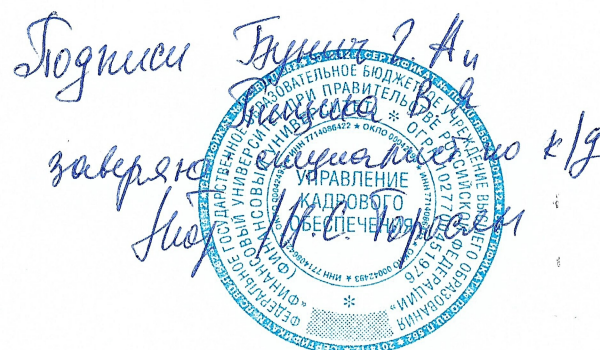 Подписи Бунич Г.А и
Тищика В.Я
заверяю специалист по к/д
/И.С. Торосян
ФЕДЕРАЛЬНОЕ ГОСУДАРСТВЕННОЕ ОБРАЗОВАТЕЛЬНОЕ БЮДЖЕТНОЕ УЧРЕЖДЕНИЕ ВЫСШЕГО ОБРАЗОВАНИЯ
«ФИНАНСОВЫЙ УНИВЕРСИТЕТ ПРИ ПРАВИТЕЛЬСТВЕ РОССИЙСКОЙ ФЕДЕРАЦИИ»
(ФИНАНСОВЫЙ УНИВЕРСИТЕТ) * ОГРН
ИНН 7714086422 * ОКПО 00042493
УПРАВЛЕНИЕ
КАДРОВОГО
ОБЕСПЕЧЕНИЯ